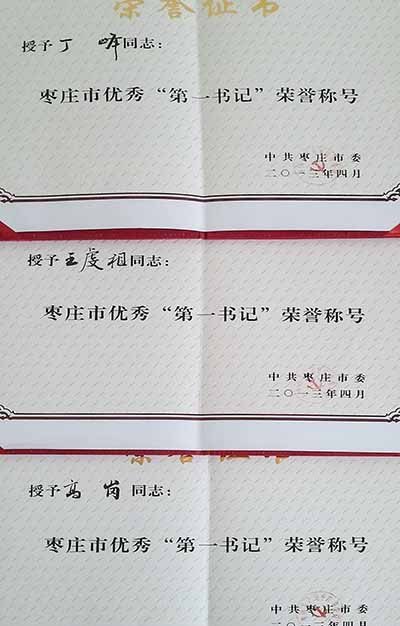 荣誉证书
授予丁峰同志：
枣庄市优秀“第一书记”荣誉称号
中共枣庄市委
二〇一三年四月
授予王虔祖同志：
枣庄市优秀“第一书记”荣誉称号
中共枣庄市委
二〇一三年四月
荣誉证书
授予高岗同志：
枣庄市优秀“第一书记”荣誉称号
中共枣庄市委
二〇一三年四月